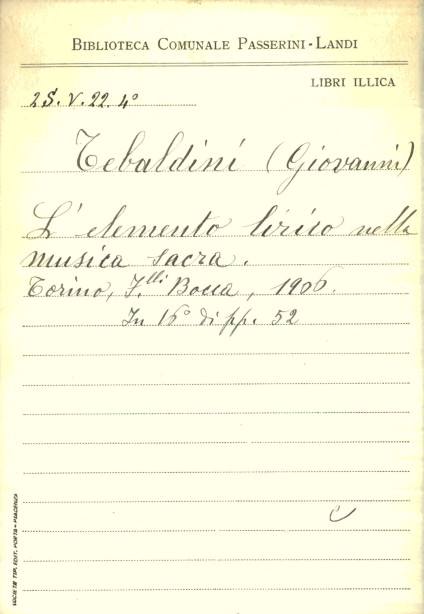 BIBLIOTECA COMUNALE PASSERINI-LANDI
LIBRI ILLICA
2S.V.22.4º
Tebaldini (Giovanni)
L'elemento lirico nella
musica sacra.
Torino, F.lli Bocca, 1906.
In 16º di pp. 52
SOCIETÀ TIP. EDIT. PORTA - PIACENZA